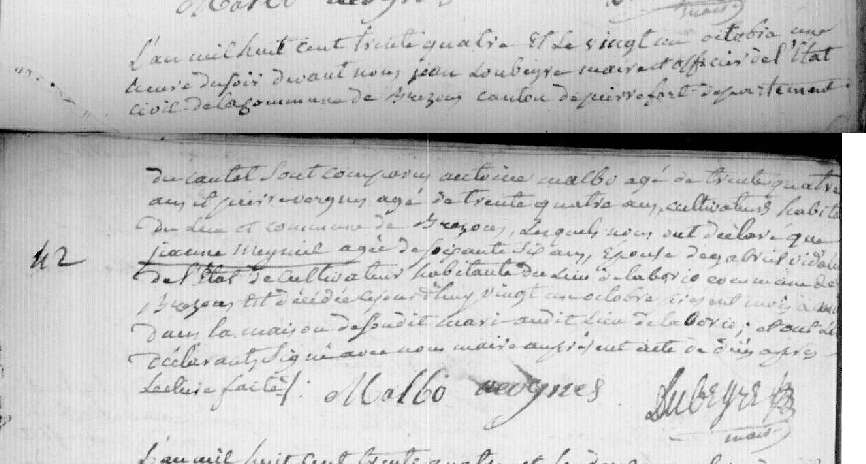 Malbo vergnes
maire
L'an mil huit cent trente quatre et le vingt un octobre une
heure du soir devant nous jean Loubeyre maire et officier de l'État
civil de la commune de Brezons canton de pierrefort departement
du cantal Sont comparus antoine malbo agé de trente quatre
ans et pierre vergnes agé de trente quatre ans, cultivateurs habit
du Lieu et commune de Brezons, Lesquels nous ont déclaré que
42
jeanne meyniel agée de soixante six ans, Épouse de gabriel vidal
de l'État de cultivateur habitante du Lieu de laborio commune de
Brezons est décédée ce jourd'huy vingt un octobre présent mois
dans la maison de sondit mari audit Lieu de laborio; et ont Les
déclarants, Signé avec nous maire au présent acte de décès apres
Lecture faite /:
Malbo vergnes Lubeyre
maire
L'an mil huit cent trente quatre et le